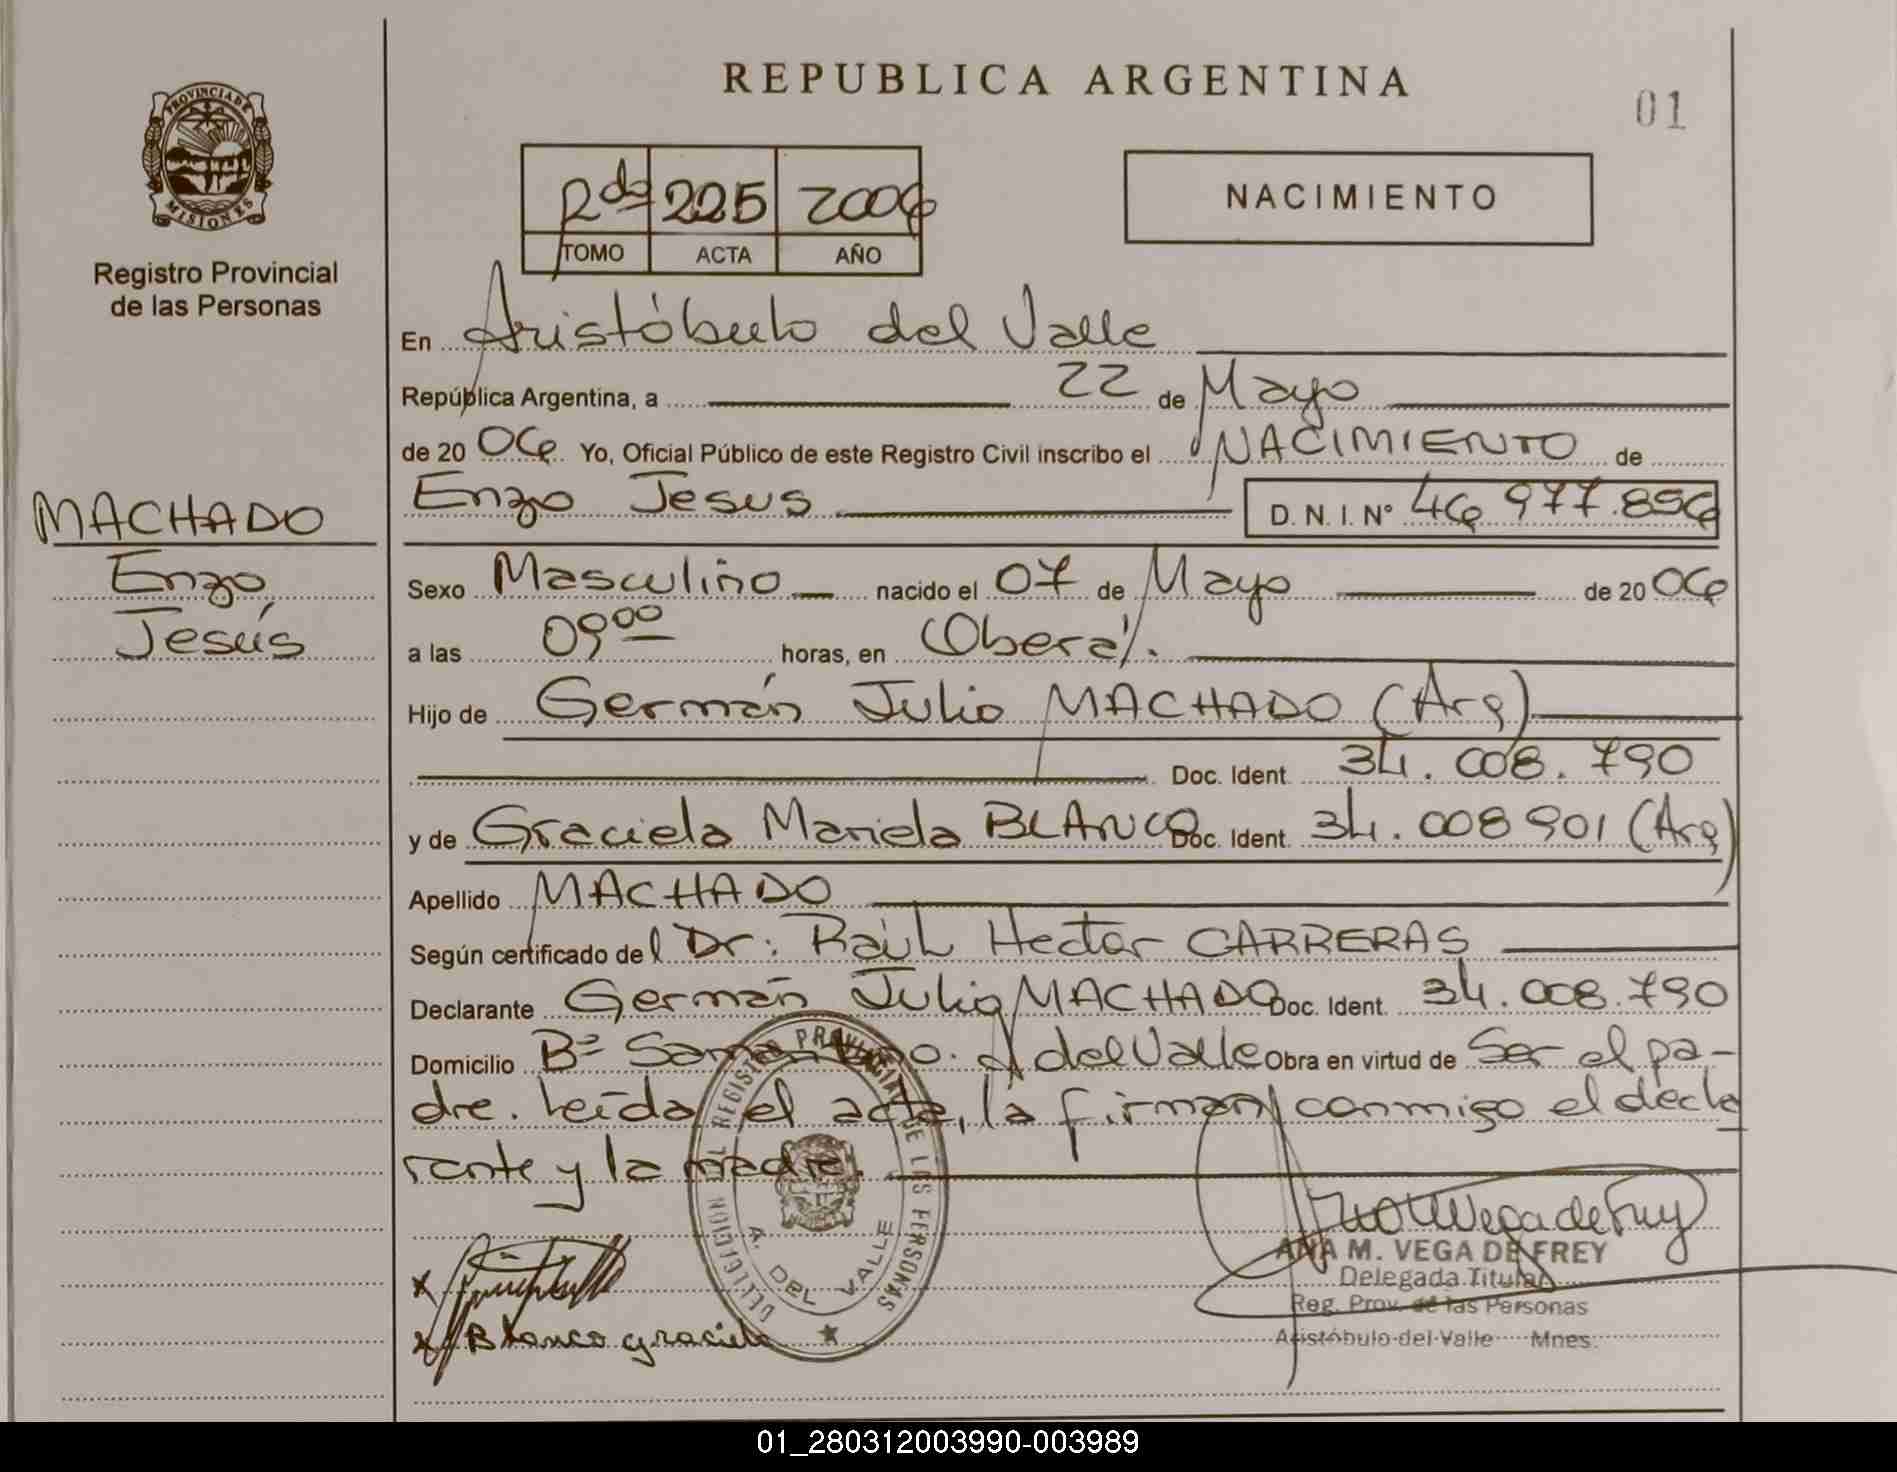 REPUBLICA ARGENTINA
01
PROVINCIA DE
MISIONES
Registro Provincial
de las Personas
2do 225 2006
TOMO ACTA AÑO
NACIMIENTO
En Aristóbulo del Valle
República Argentina, a 22 de Mayo
de 20 06 Yo, Oficial Público de este Registro Civil inscribo el NACIMIENTO de
Enzo Jesus D. N. I. N° 46 977.856
MACHADO
Enzo
Jesús
Sexo Masculino nacido el 07 de Mayo de 20 06
a las 09 00 horas, en Oberá.
Hijo de Germán Julio MACHADO (Arg)
Doc. Ident. 34.008.790
y de Graciela Mariela BLANCO Doc. Ident. 34.008 901 (Arg)
Apellido MACHADO
Según certificado del Dr. Raúl Hector CARRERAS
Declarante Germán Julio MACHADO Doc. Ident. 34.008.790
Domicilio Bº A del Valle Obra en virtud de Ser el pa-
dre. Leída el acta, la firman conmigo el decla
rante y la madre.
REGISTRO PROVINCIAL DE LAS PERSONAS
A. DEL VALLE
ANA M. VEGA DE FREY
Delegada Titular
Reg. Prov. de las Personas
Aristóbulo del Valle Mnes.
x
x Blanco graciela
01_280312003990-003989